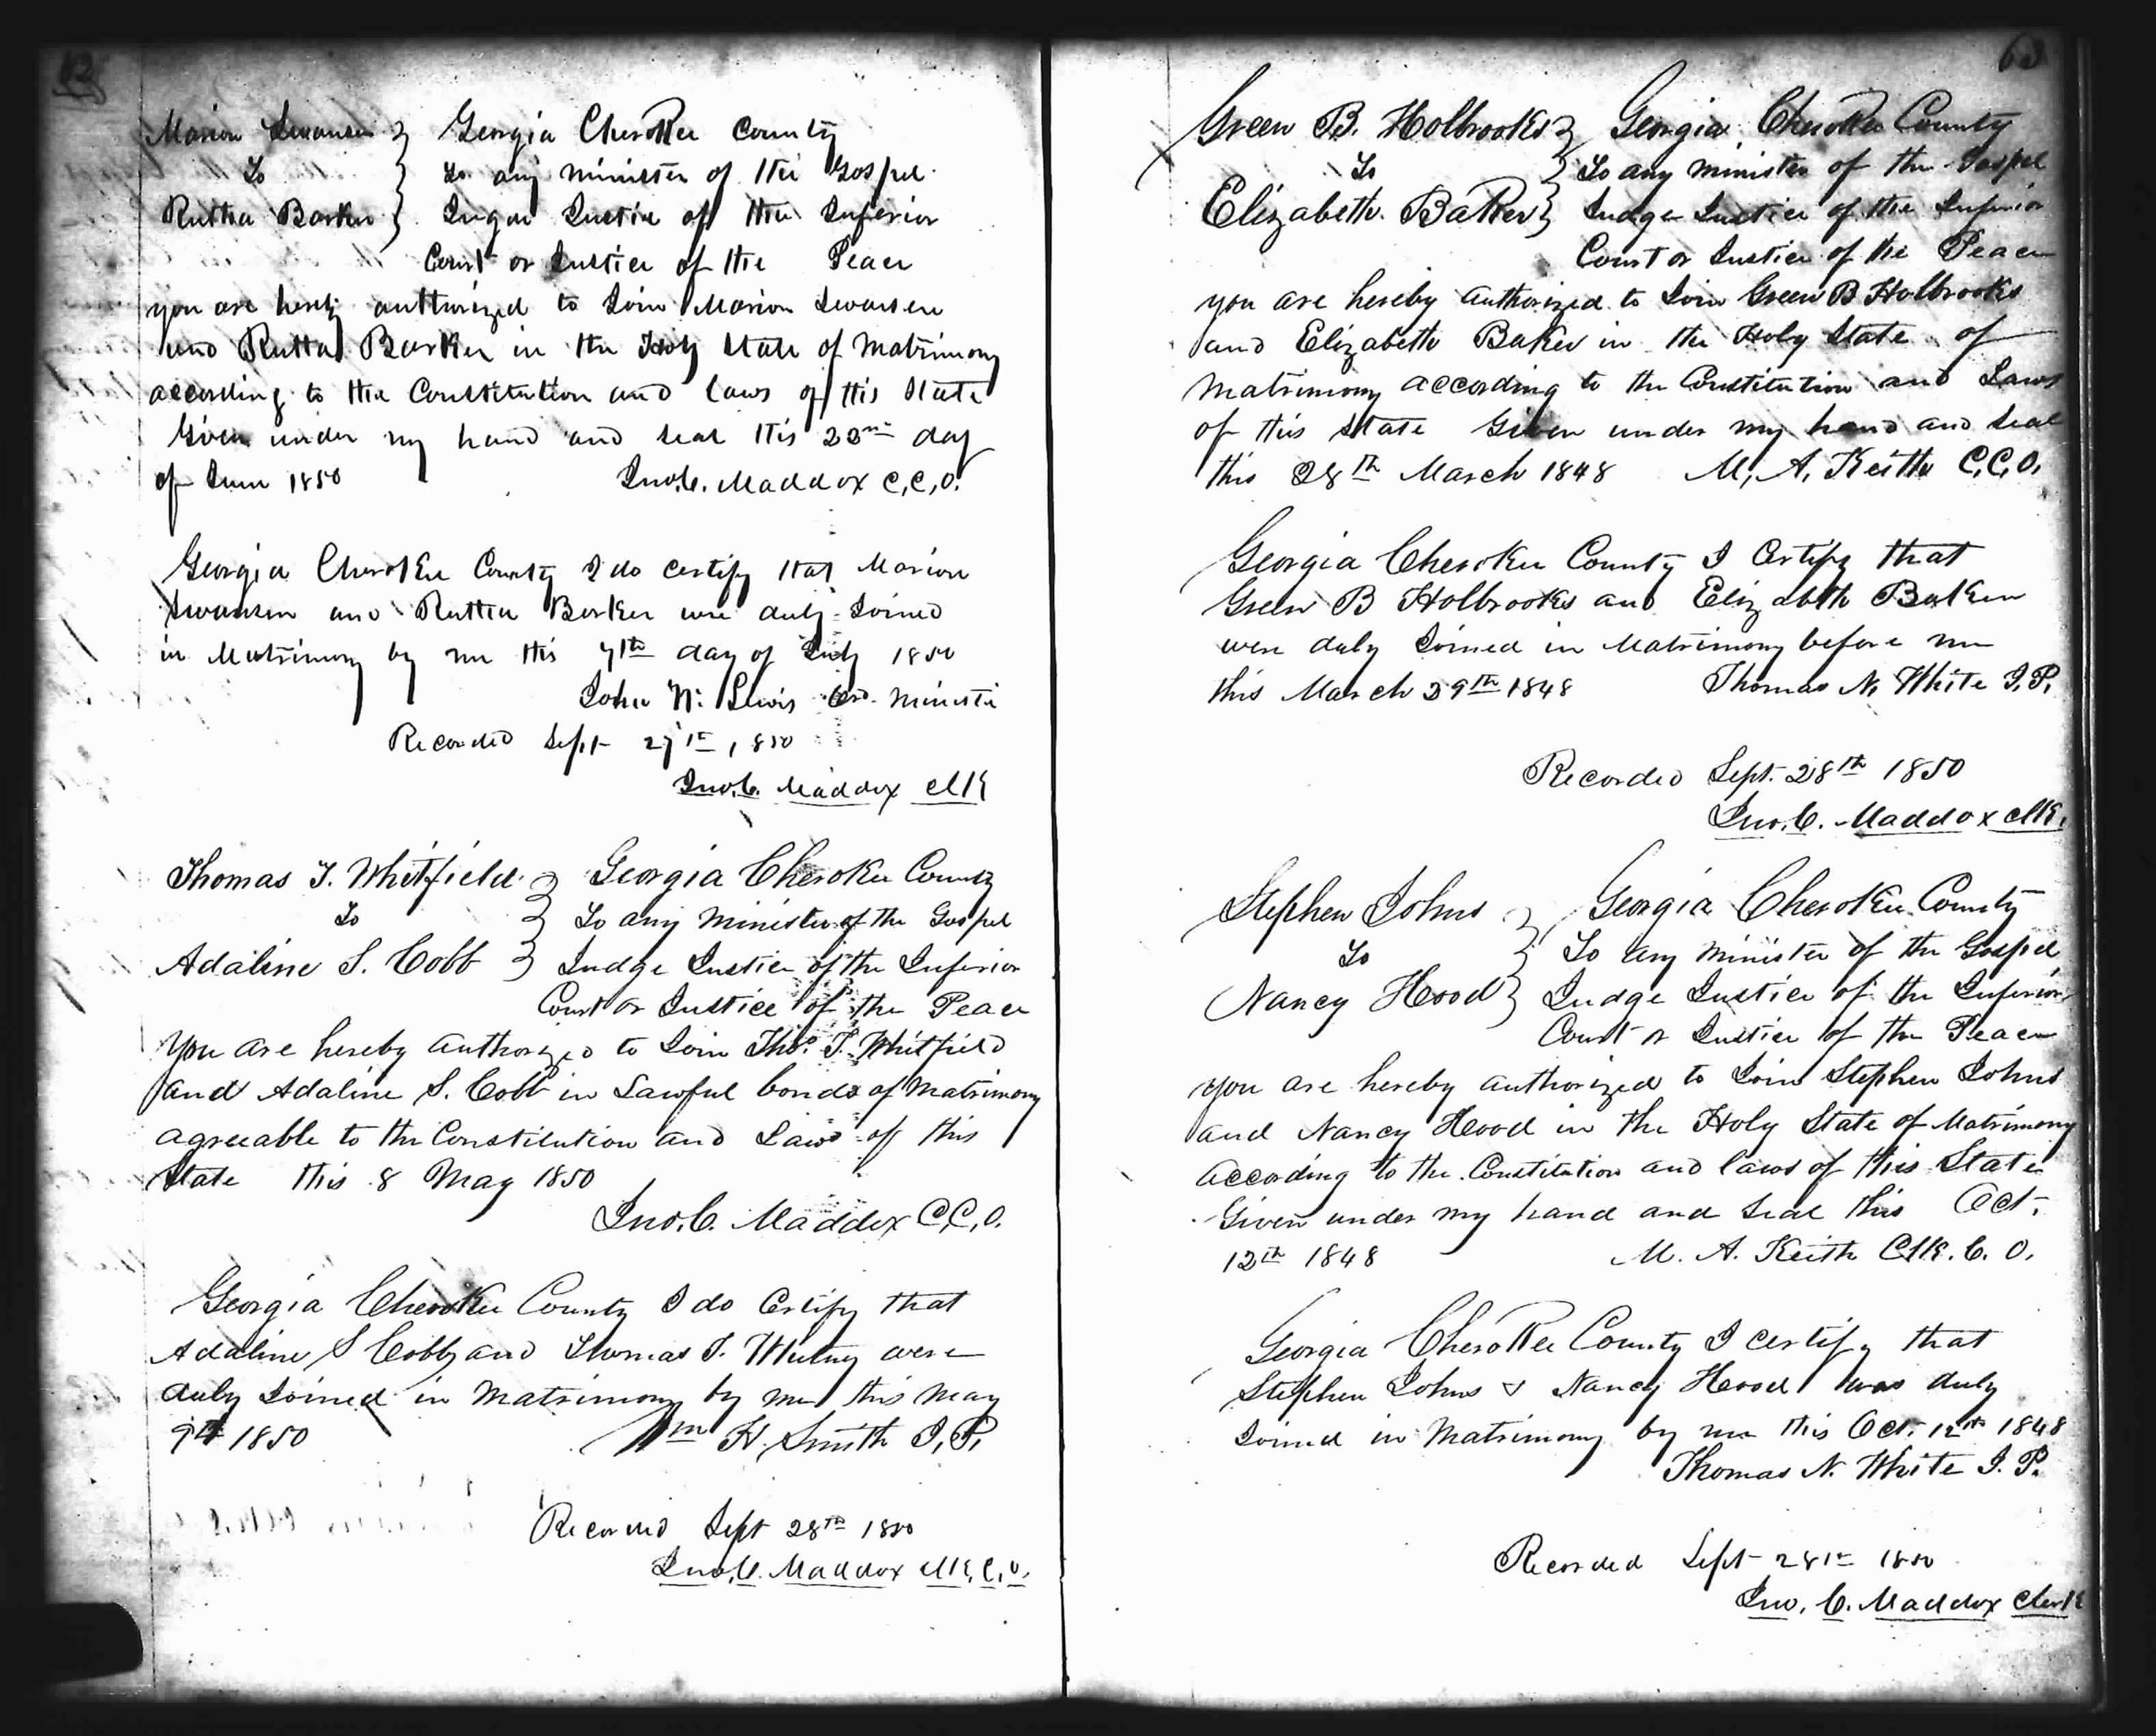 62
Marion Swansen } Georgia Cherokee County
To } To any minister of the Gospel
Rutha Barker } Jugde Justice of the Inferior
Court or Justice of the Peace
you are hereby authorized to Join Marion Swansen
and Rutha Barker in the Holy State of Matrimony
according to the Constitution and laws of this State
Given under my hand and seal this 22nd day
of June 1850 Jno. C. Maddox C.C.O.
Georgia Cherokee County I do certify that Marion
Swansen and Rutha Barker were duly Joined
in Matrimony by me this 7th day of July 1850
John W. Lewis Ord. Minister
Recorded Sept 27th 1850
Jno. C. Maddox Clk
Thomas T. Whitfield } Georgia Cherokee County
To } To any Minister of the Gospel
Adaline S. Cobb } Judge Justice of the Inferior
Court or Justice of the Peace
You are hereby authorized to Join Thos. T. Whitfield
and Adaline S. Cobb in Lawful bonds of Matrimony
agreeable to the Constitution and Laws of this
State this 8 May 1850
Jno. C. Maddox C.C.O.
Georgia Cherokee County I do Certify that
Adaline S Cobb and Thomas T. were
duly Joined in Matrimony by me this May
9th 1850 Wm H. Smith J.P.
Recorded Sept 28th 1850
Jno. C. Maddox Clk. C.O.
63
Green B. Holbrooks } Georgia Cherokee County
To } To any Minister of the Gospel
Elizabeth Baker } Judge Justice of the Inferior
Court or Justice of the Peace
you are hereby authorized to Join Green B Holbrooks
and Elizabeth Baker in the Holy State of
Matrimony according to the Constitution and Laws
of this State Given under my hand and seal
this 28th March 1848 M. A. Keith C.C.O.
Georgia Cherokee County I Certify that
Green B Holbrooks and Elizabeth Baker
were duly Joined in Matrimony before me
this March 29th 1848 Thomas N. White J.P.
Recorded Sept. 28th 1850
Jno. C. Maddox Clk.
Stephen Johns } Georgia Cherokee County
To } To any Minister of the Gospel
Nancy Hood } Judge Justice of the Inferior
Court or Justice of the Peace
you are hereby authorized to Join Stephen Johns
and Nancy Hood in the Holy State of Matrimony
according to the Constitution and laws of this State
Given under my hand and seal this Oct.
12th 1848 M. A. Keith Clk. C. O.
Georgia Cherokee County I certify that
Stephen Johns & Nancy Hood was duly
Joined in Matrimony by me this Oct. 12th 1848
Thomas N. White J. P.
Recorded Sept 28th 1850
Jno. C. Maddox Clerk